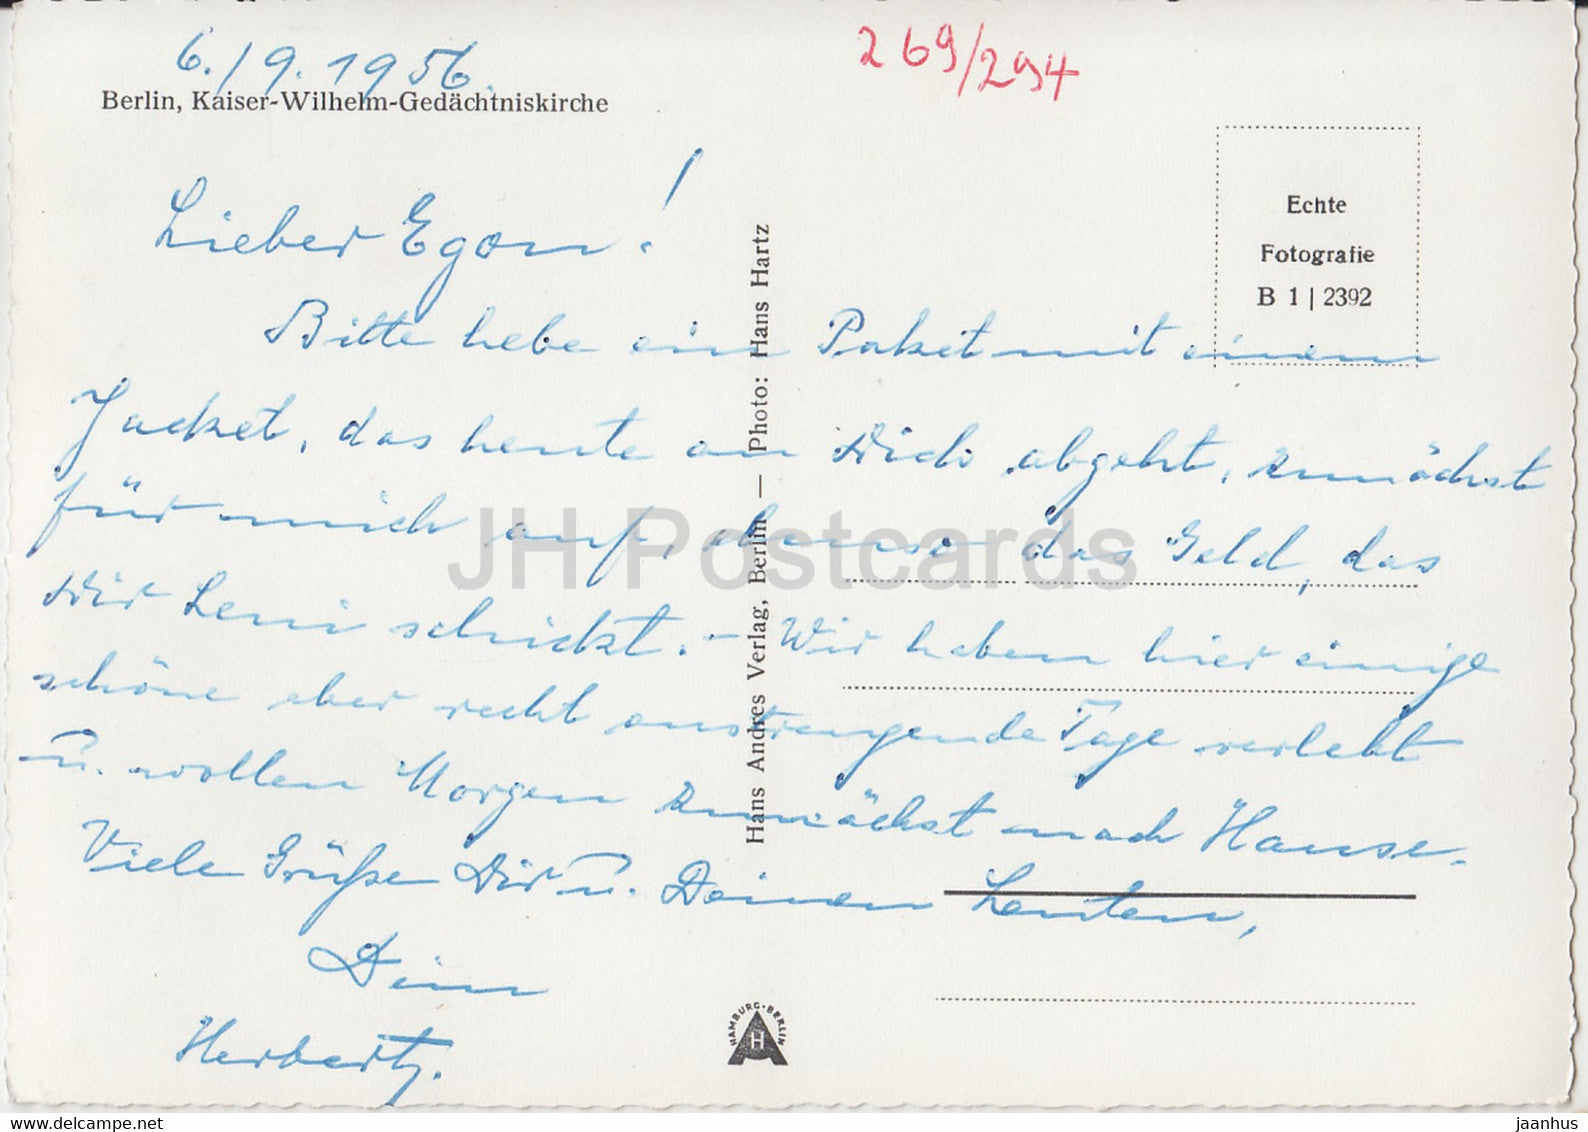 6./9. 1956.
269/294
Berlin, Kaiser-Wilhelm-Gedächtniskirche
Echte
Fotografie
B 1 | 2392
Lieber Egon!
Bitte hebe ein Paket mit einem
Jacket, das heute an Dich abgeht, zunächst
für mich auf, ebenso das Geld, das
Dir Leni schickt. – Wir haben hier einige
schöne aber recht anstrengende Tage verlebt
u. wollen Morgen zunächst nach Hause.
Viele Grüße Dir u. Deinen Leuten,
Dein
Herbert.
Hans Andres Verlag, Berlin — Photo: Hans Hartz
HAMBURG-BERLIN
H
JH Postcards
www.delcampe.net
jaanhus